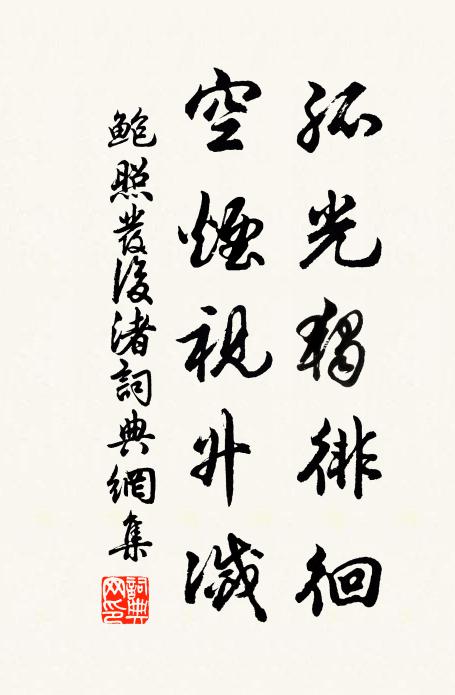 孤光獨徘徊
空煙視升滅
鮑照發後渚詞典網集
詞典
网印